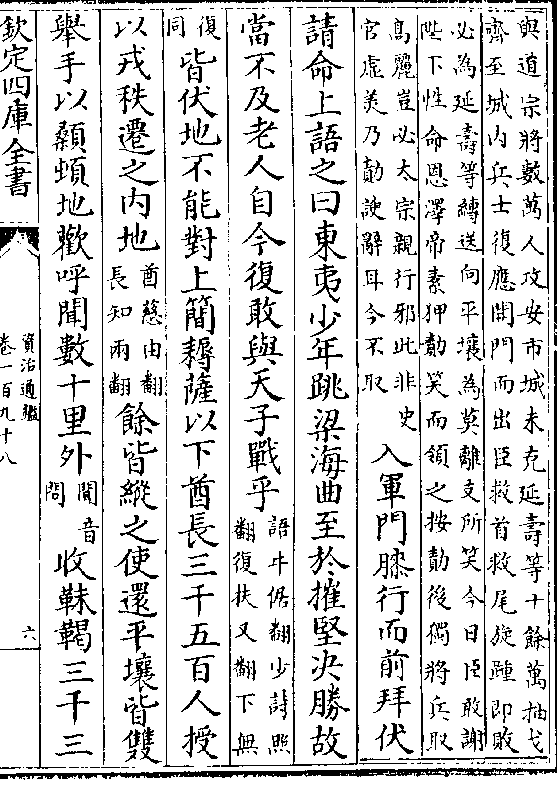 與道宗將數萬人攻安市城未克延壽等十餘萬抽戈
齊至城内兵士復應開門而出臣救首救尾旋踵即敗
必為延壽等縛送向平壤為莫離支所笑今日臣敢謝
陛下性命恩澤帝素狎勣笑而頷之按勣後獨將兵取
髙麗豈必太宗親行邪此非史
官虚美乃勣諛辭耳今不取
入軍門膝行而前拜伏
請命上語之曰東夷少年跳梁海曲至於摧堅决勝故
當不及老人自今復敢與天子戰乎
語牛倨翻少詩照
翻復扶又翻下無
復
同
皆伏地不能對上簡耨薩以下酋長三千五百人授
以戎秩遷之内地
酋慈由翻
長知兩翻
餘皆縱之使還平壤皆雙
舉手以顙頓地歡呼聞數十里外
聞音
問
收靺鞨三千三
欽定四庫全書
資治通鑑
卷一百九十八
六